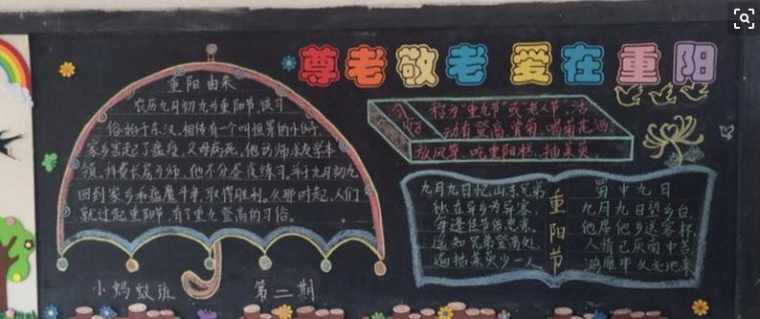 尊老敬老 爱在重阳
重阳由来
农历九月初九为重阳节,
俗始于东汉,相传有一个叫恒景的
家乡害起了瘟疫,父母病死,他
领,
回到家乡和瘟魔斗争,取得胜利。从那时起,人们
就过起重阳节,有了重九登高的习俗。
小蚂蚁班 第二期
称为“重九节”或“老人节”,活
动有登高,赏菊,喝菊花酒,
放风筝,吃重阳糕,插茱萸。
九月九日忆山东兄弟
独在异乡为异客,
每逢佳节倍思亲。
遥知兄弟登高处,
遍插茱萸少一人
重阳节
蜀中九日
九月九日望乡台,
他席他乡送客杯,
人情已厌南中苦
鸿雁 北地来